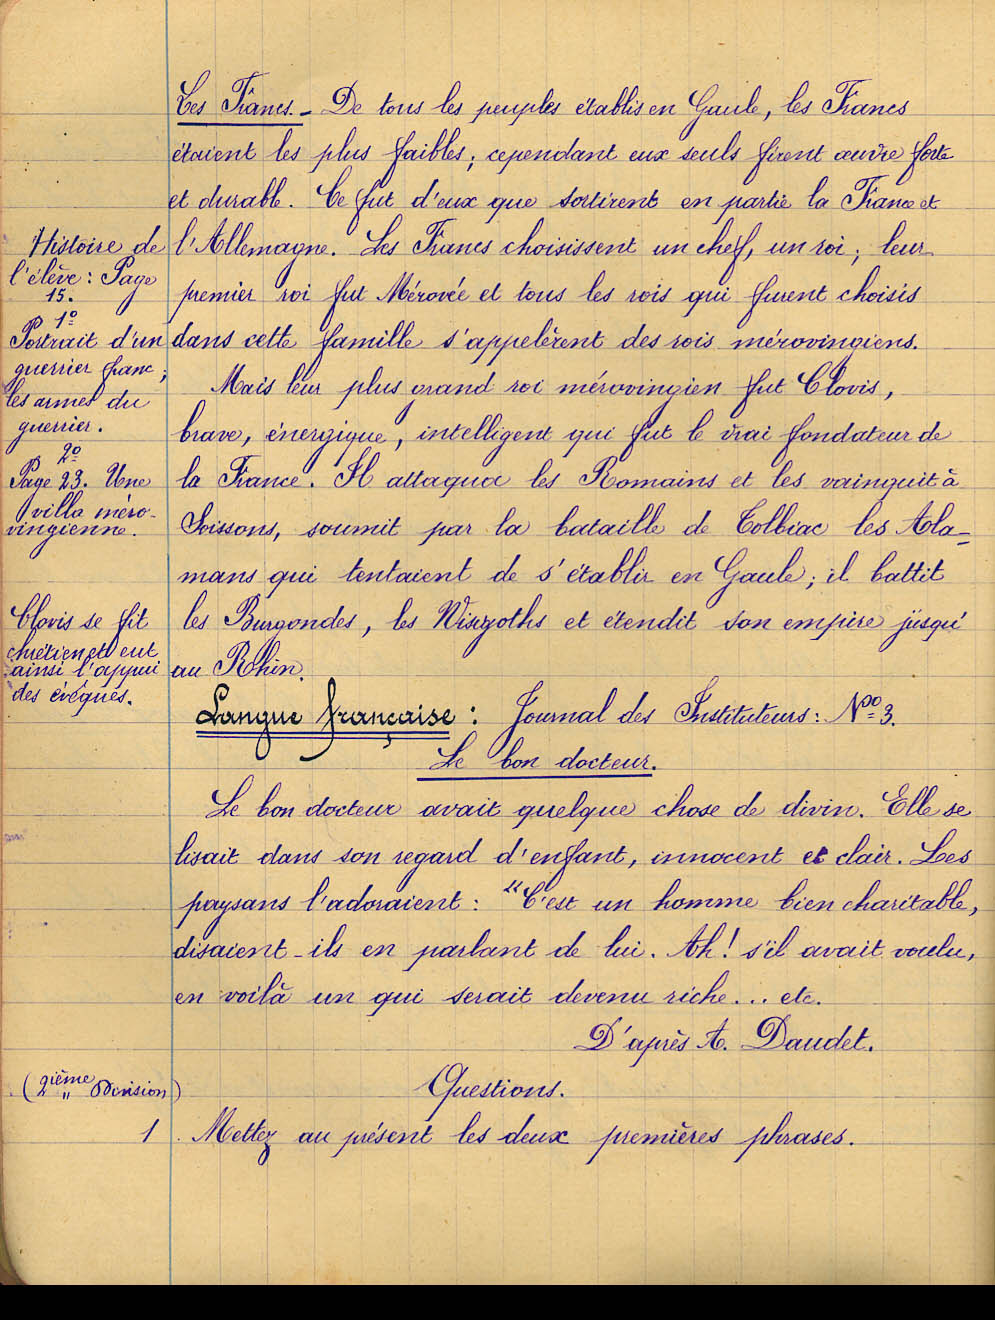 Les Francs. - De tous les peuples établis en Gaule, les Francs
étaient les plus faibles; cependant eux seuls firent œuvre forte
et durable. Ce fut d'eux que sortirent en partie la France et
l'Allemagne. Les Francs choisissent un chef, un roi; leur
premier roi fut Mérovée et tous les rois qui furent choisis
dans cette famille s'appelèrent des rois mérovingiens.
Mais leur plus grand roi mérovingien fut Clovis,
brave, énergique, intelligent qui fut le vrai fondateur de
la France. Il attaqua les Romains et les vainquit à
Soissons, soumit par la bataille de Tolbiac les Ala=
mans qui tentaient de s'établir en Gaule; il battit
les Burgondes, les Wisigoths et étendit son empire jusqu'
au Rhin.
Histoire de
l'élève: Page
15.
1º
Portrait d'un
guerrier franc;
les armes du
guerrier.
2º
Page 23. Une
villa méro-
vingienne.
Clovis se fit
chrétien et eut
ainsi l'appui
des évêques.
Langue française : Journal des Instituteurs: Nº 3.
Le bon docteur.
Le bon docteur avait quelque chose de divin. Elle se
lisait dans son regard d'enfant, innocent et clair. Les
paysans l'adoraient : "C'est un homme bien charitable,
disaient-ils en parlant de lui. Ah! s'il avait voulu,
en voilà un qui serait devenu riche... etc.
D'après A. Daudet.
(2ième Division)
Questions.
1. Mettez au présent les deux premières phrases.